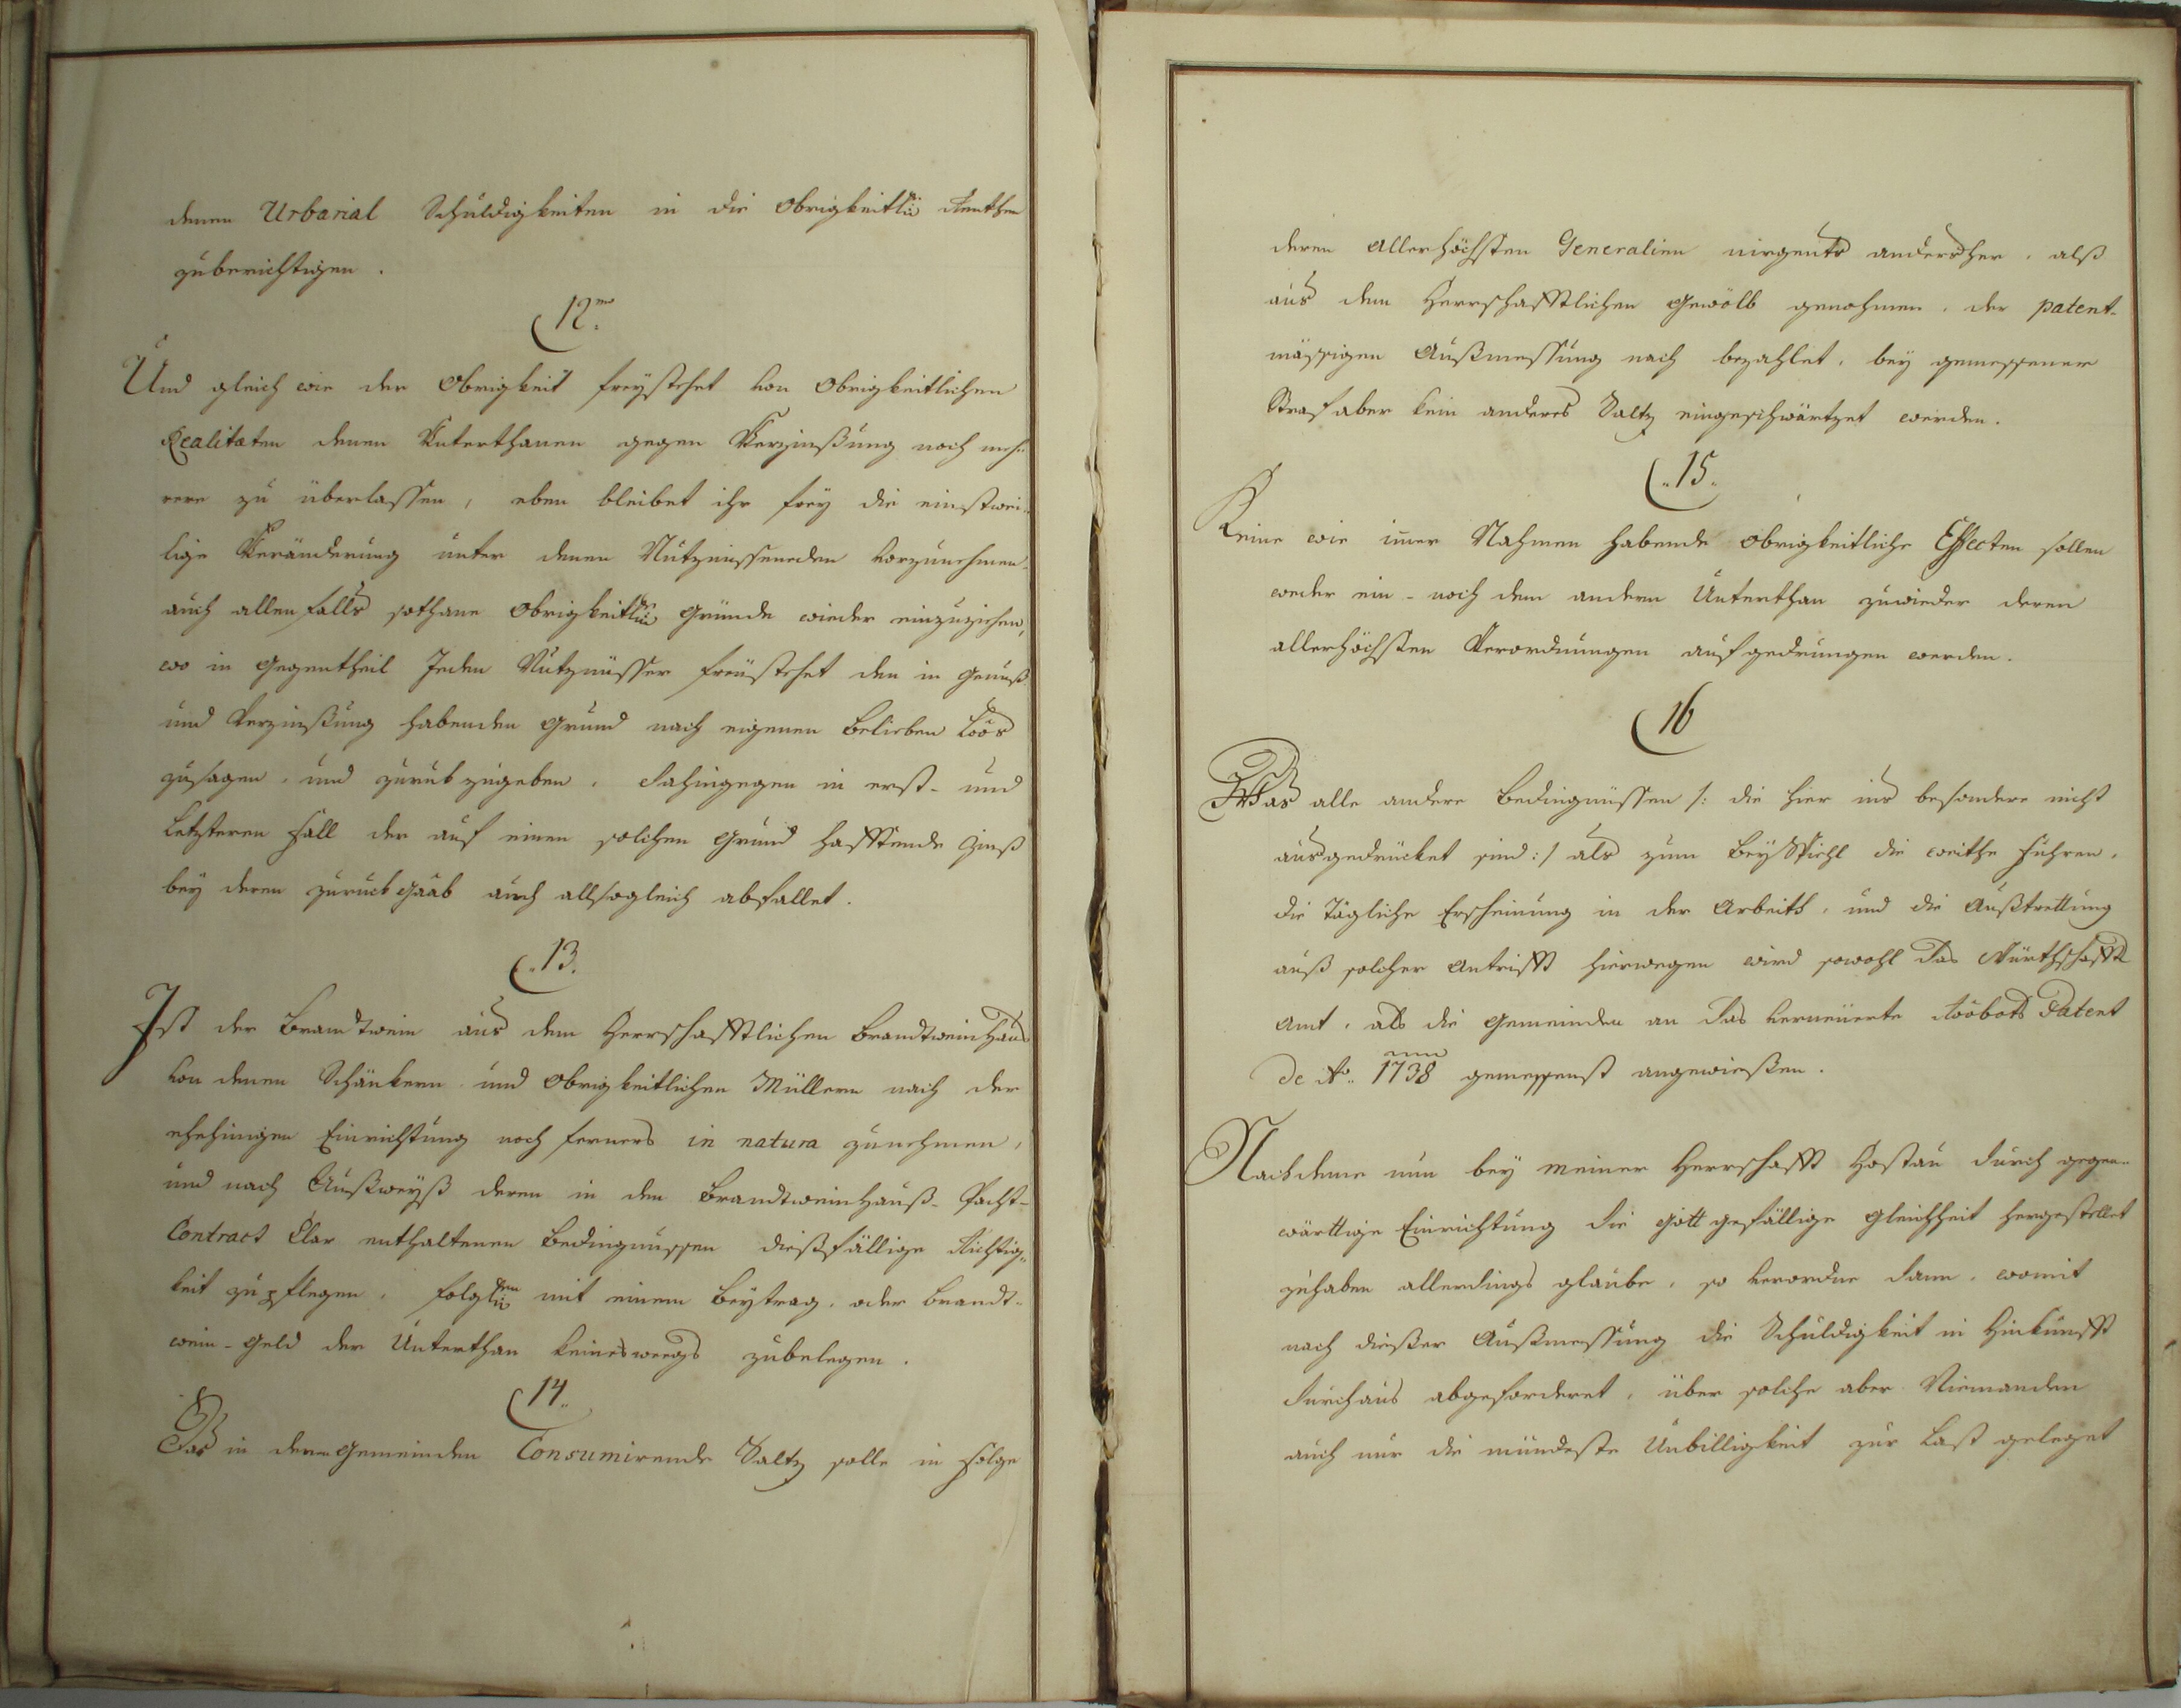 denen Urbarial Schuldigkeiten in die Obrigkeitl: Renthen
zuberichtigen.
12mo
Und gleich wie der Obrigkeit freystehet von Obrigkeitlichen
Realitæten denen Unterthanen gegen Verzinßung noch meh-
rere zu überlassen, eben bleibet ihr frey die einstwei-
lige Veränderung unter denen Nutznissenden vorzunehmen,
auch allenfalls sothane Obrigkeitl: Gründe wieder einzuziehen,
wo in Gegentheil Jeden Nutznüsser freustehet den in Genuß
und Verzinßung habenden Grund nach eigenen Belieben Loos
zusagen, und zuruk zugeben. Dahingegen in erst- und
Letzteren Fall der auf einen solchen Grund hafftende Zinß
bey deren zuruckgaab auch allsogleich abfallet.
13.
Ist der Brandtwein aus dem Herrschafftlichen Brandtwein Haus
von denen Schänkern und Obrigkeitlichen Müllern nach der
ehehinigen Einrichtung noch ferners in natura zunehmen,
und nach Außweyß deren in den Brandtwein Hauß-Pacht-
Contract Clar enthaltenen Bedingnussen dießfällige Richtig-
keit zu pflegen, folgl: mit einem Beytrag, oder Brandt-
wein-Geld der Unterthan keineswegs zubelegen.
14.
Das in denen Gemeinden Consumirende Saltz solle in Folge
deren Allerhöchsten Generalien nirgents andersher, alß
aus dem Herrschafftlichen Gewölb genohmen, der patent-
mässigen Außmessung nach bezahlet, bey gemessener
Straf aber kein anderes Saltz eingeschwärtzet werden.
15.
Keine wie immer Nahmen habende Obrigkeitliche Effecten sollen
weder ein- noch dem andern Unterthan zuwieder deren
allerhöchsten Verordnungen aufgedrungen werden.
16
Was alle andere Bedingnüssen /: die hier ins besondere nicht
ausgedrücket sind :/ als zum Beyspiehl die weithe Fuhren,
die Tägliche Erscheinung in der Arbeith, und die Außtrettung
auß solcher Antrifft hierwegen wird sowohl das Würthschaffts
Amt, als die Gemeinden an das verneuerte Roobots Patent
de Ao. 1738 gemessenst angewießen.
Nachdeme nun bey meiner Herrschafft Hostau durch gegen-
wärttige Einrichtung die Gott gefällige Gleichheit hergestellet
zuhaben allerdings glaube, so verordne dann, womit
nach dießer Außmessung die Schuldigkeit in Hinkunfft
durchaus abgeforderet, über solche aber Niemanden
auch nur die mündeste Unbilligkeit zur Last geleget